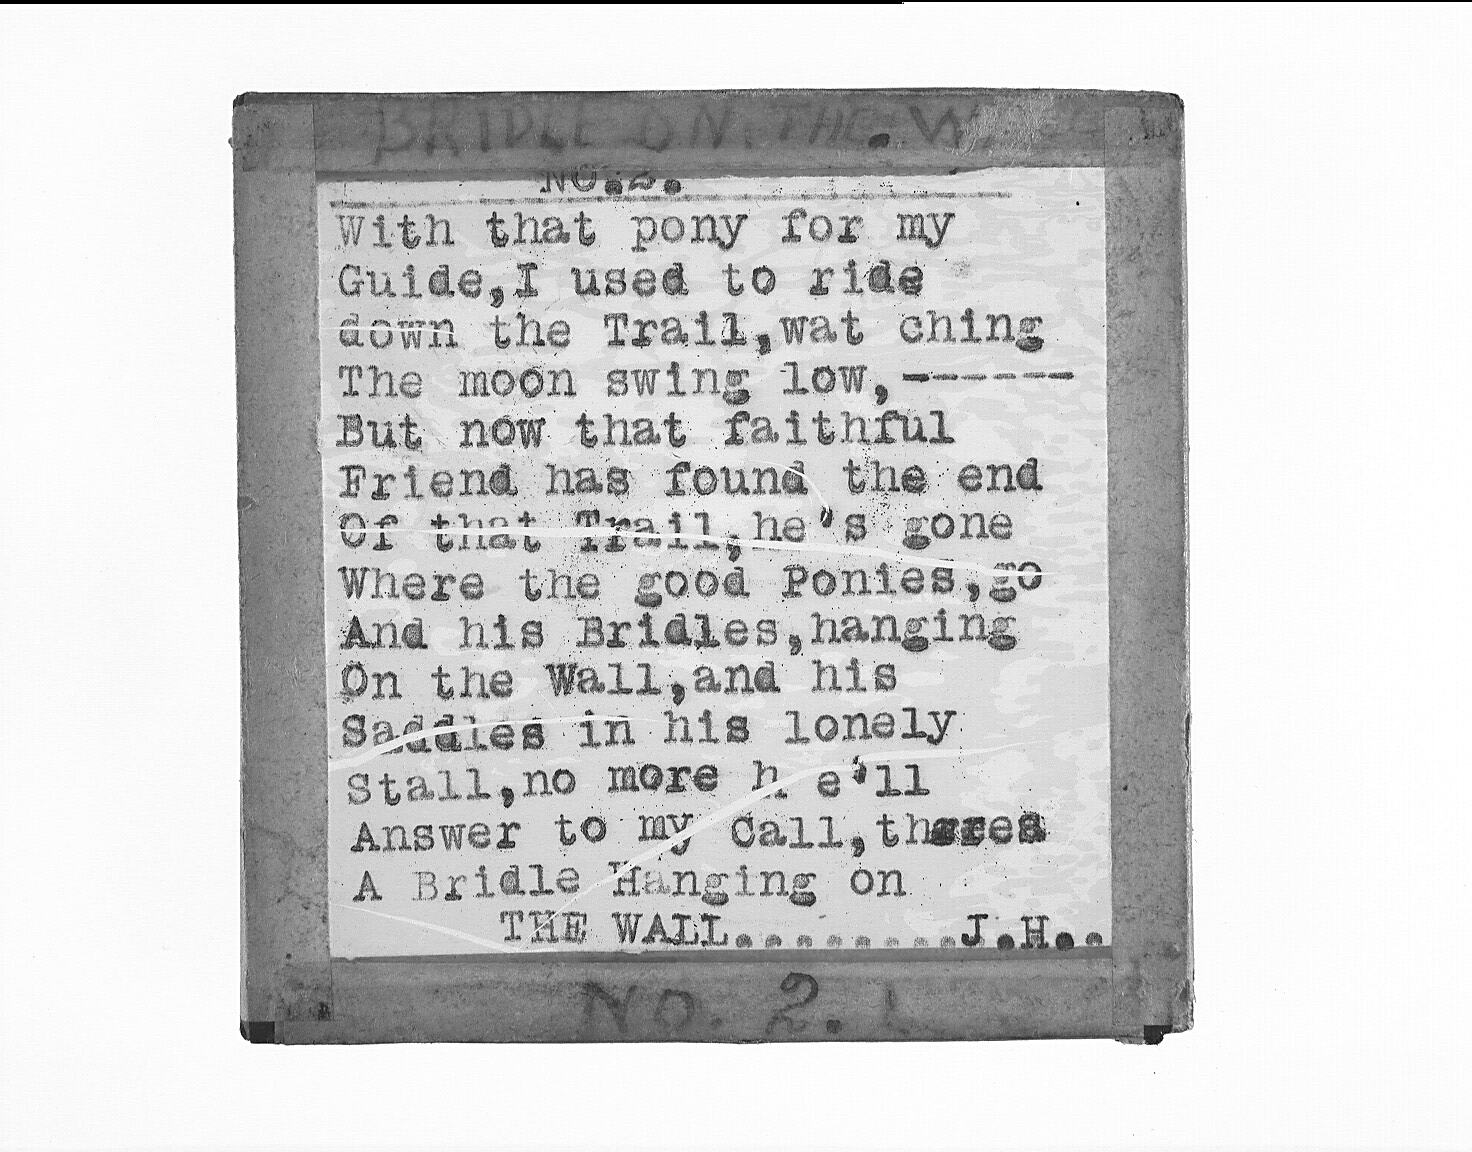 BRIDLE ON. THE. W
NO.2.
With that pony for my
Guide,I used to ride
down the Trail,wat ching
The moon swing low,------
But now that faithful
Friend has found the end
Of that Trail,he's gone
Where the good Ponies,go
And his Bridles,hanging
On the Wall,and his
Saddles in his lonely
Stall,no more h e'll
Answer to my Call,theres
A Bridle Hanging on
THE WALL.........J.H..
NO. 2.